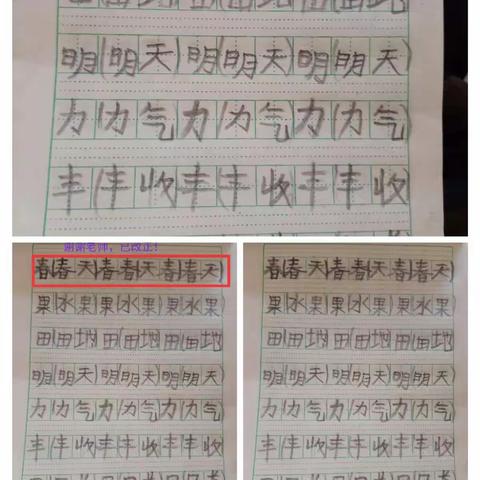 明(明天)明(明天)明(明天)
力(力气力(力气力(力气
丰(丰收丰(丰收丰(丰收)
谢谢老师，已改正！
春(春天)春(春天春(春天)
果(水果)果(水果)果(水果
田(田地田(田地田(田地
明(明天)明(明天)明(明天
力(力气)力(力气力(力气)
丰(丰收丰(丰收丰(丰收
春(春天)春(春天春(春天)
果(水果)果(水果)果(水果
田(田地田(田地田(田地
明(明天)明(明天)明(明天
力(力气)力(力气力(力气)
丰(丰收丰(丰收丰(丰收